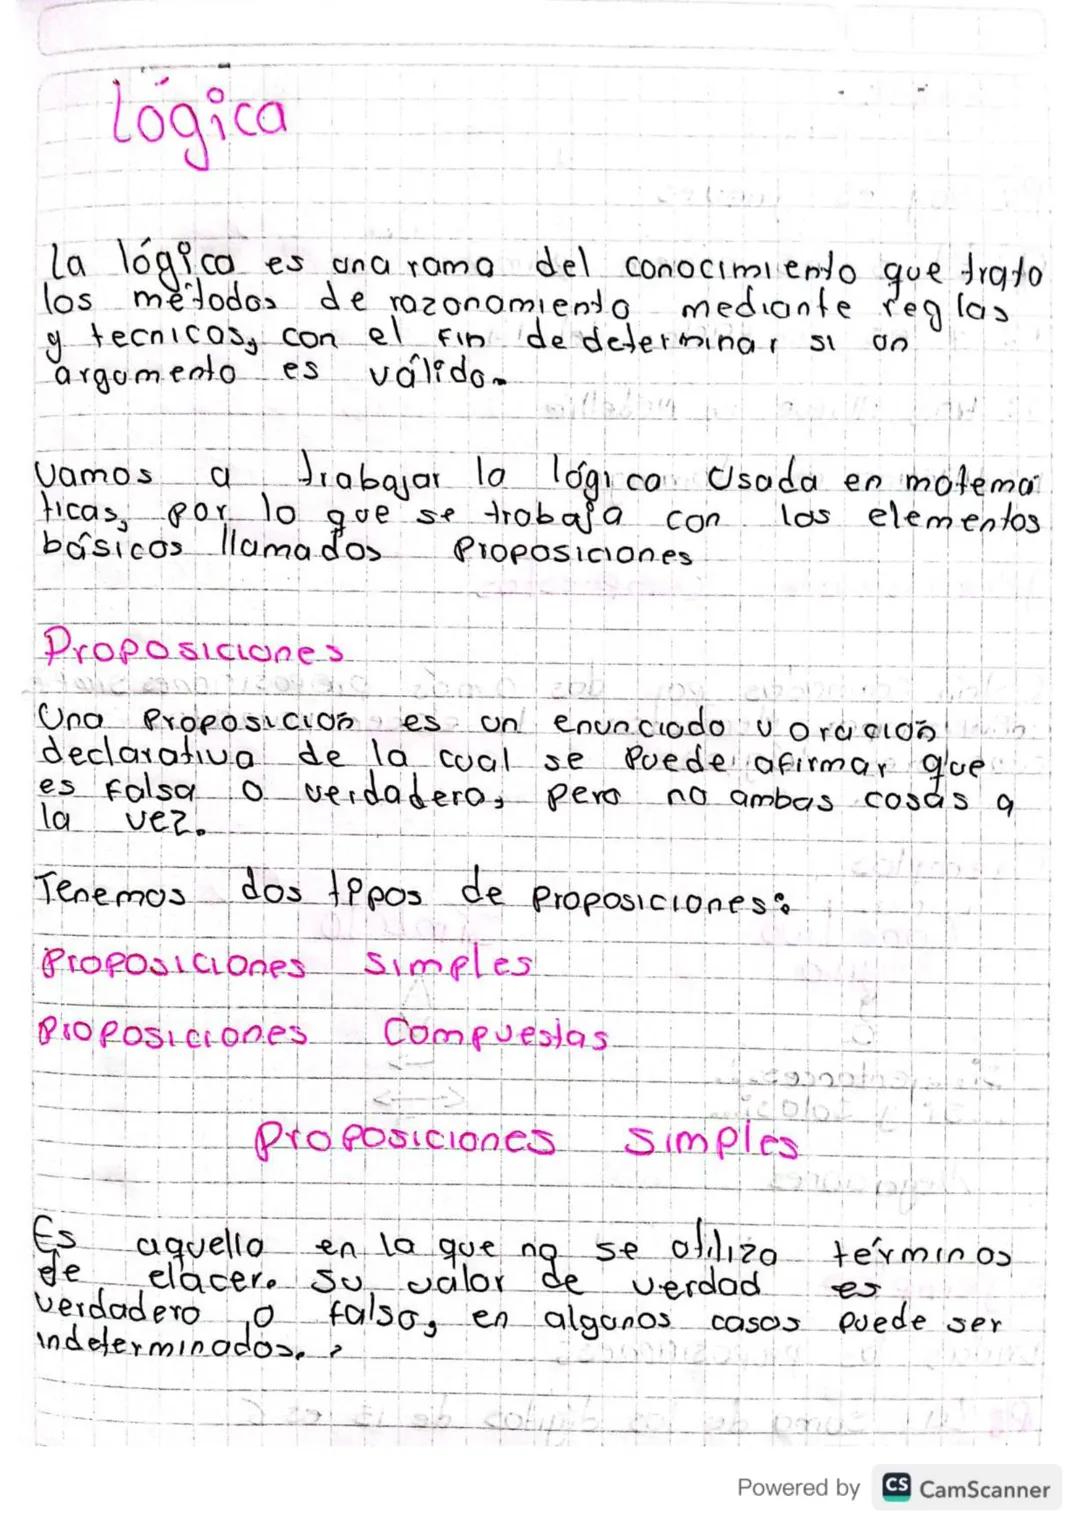 Lógica
La lógica es una rama del conocimiento que trata
los métodos de razonamiento mediante reglas
y tecnicas, con el fin de determinar si un
argumento es válido.
Vamos a trabajar la lógica Usada en matemá
ticas, por lo que se trabaja con los elementos
básicos llamados proposiciones
Proposiciones
Una Proposición es un enunciado u oración
declarativa de la cual se Puede afirmar que
es falsa o verdadera, pero no ambas cosas a
la vez.
Tenemos dos tipos de proposiciones:
Proposiciones simples
Proposiciones Compuestas
Proposiciones simples
Es aquella en la que no se utiliza términos
de elacer. Su valor de verdad es
verdadero o falso, en algunos casos puede ser
indeterminados.
Powered by CS CamScanner